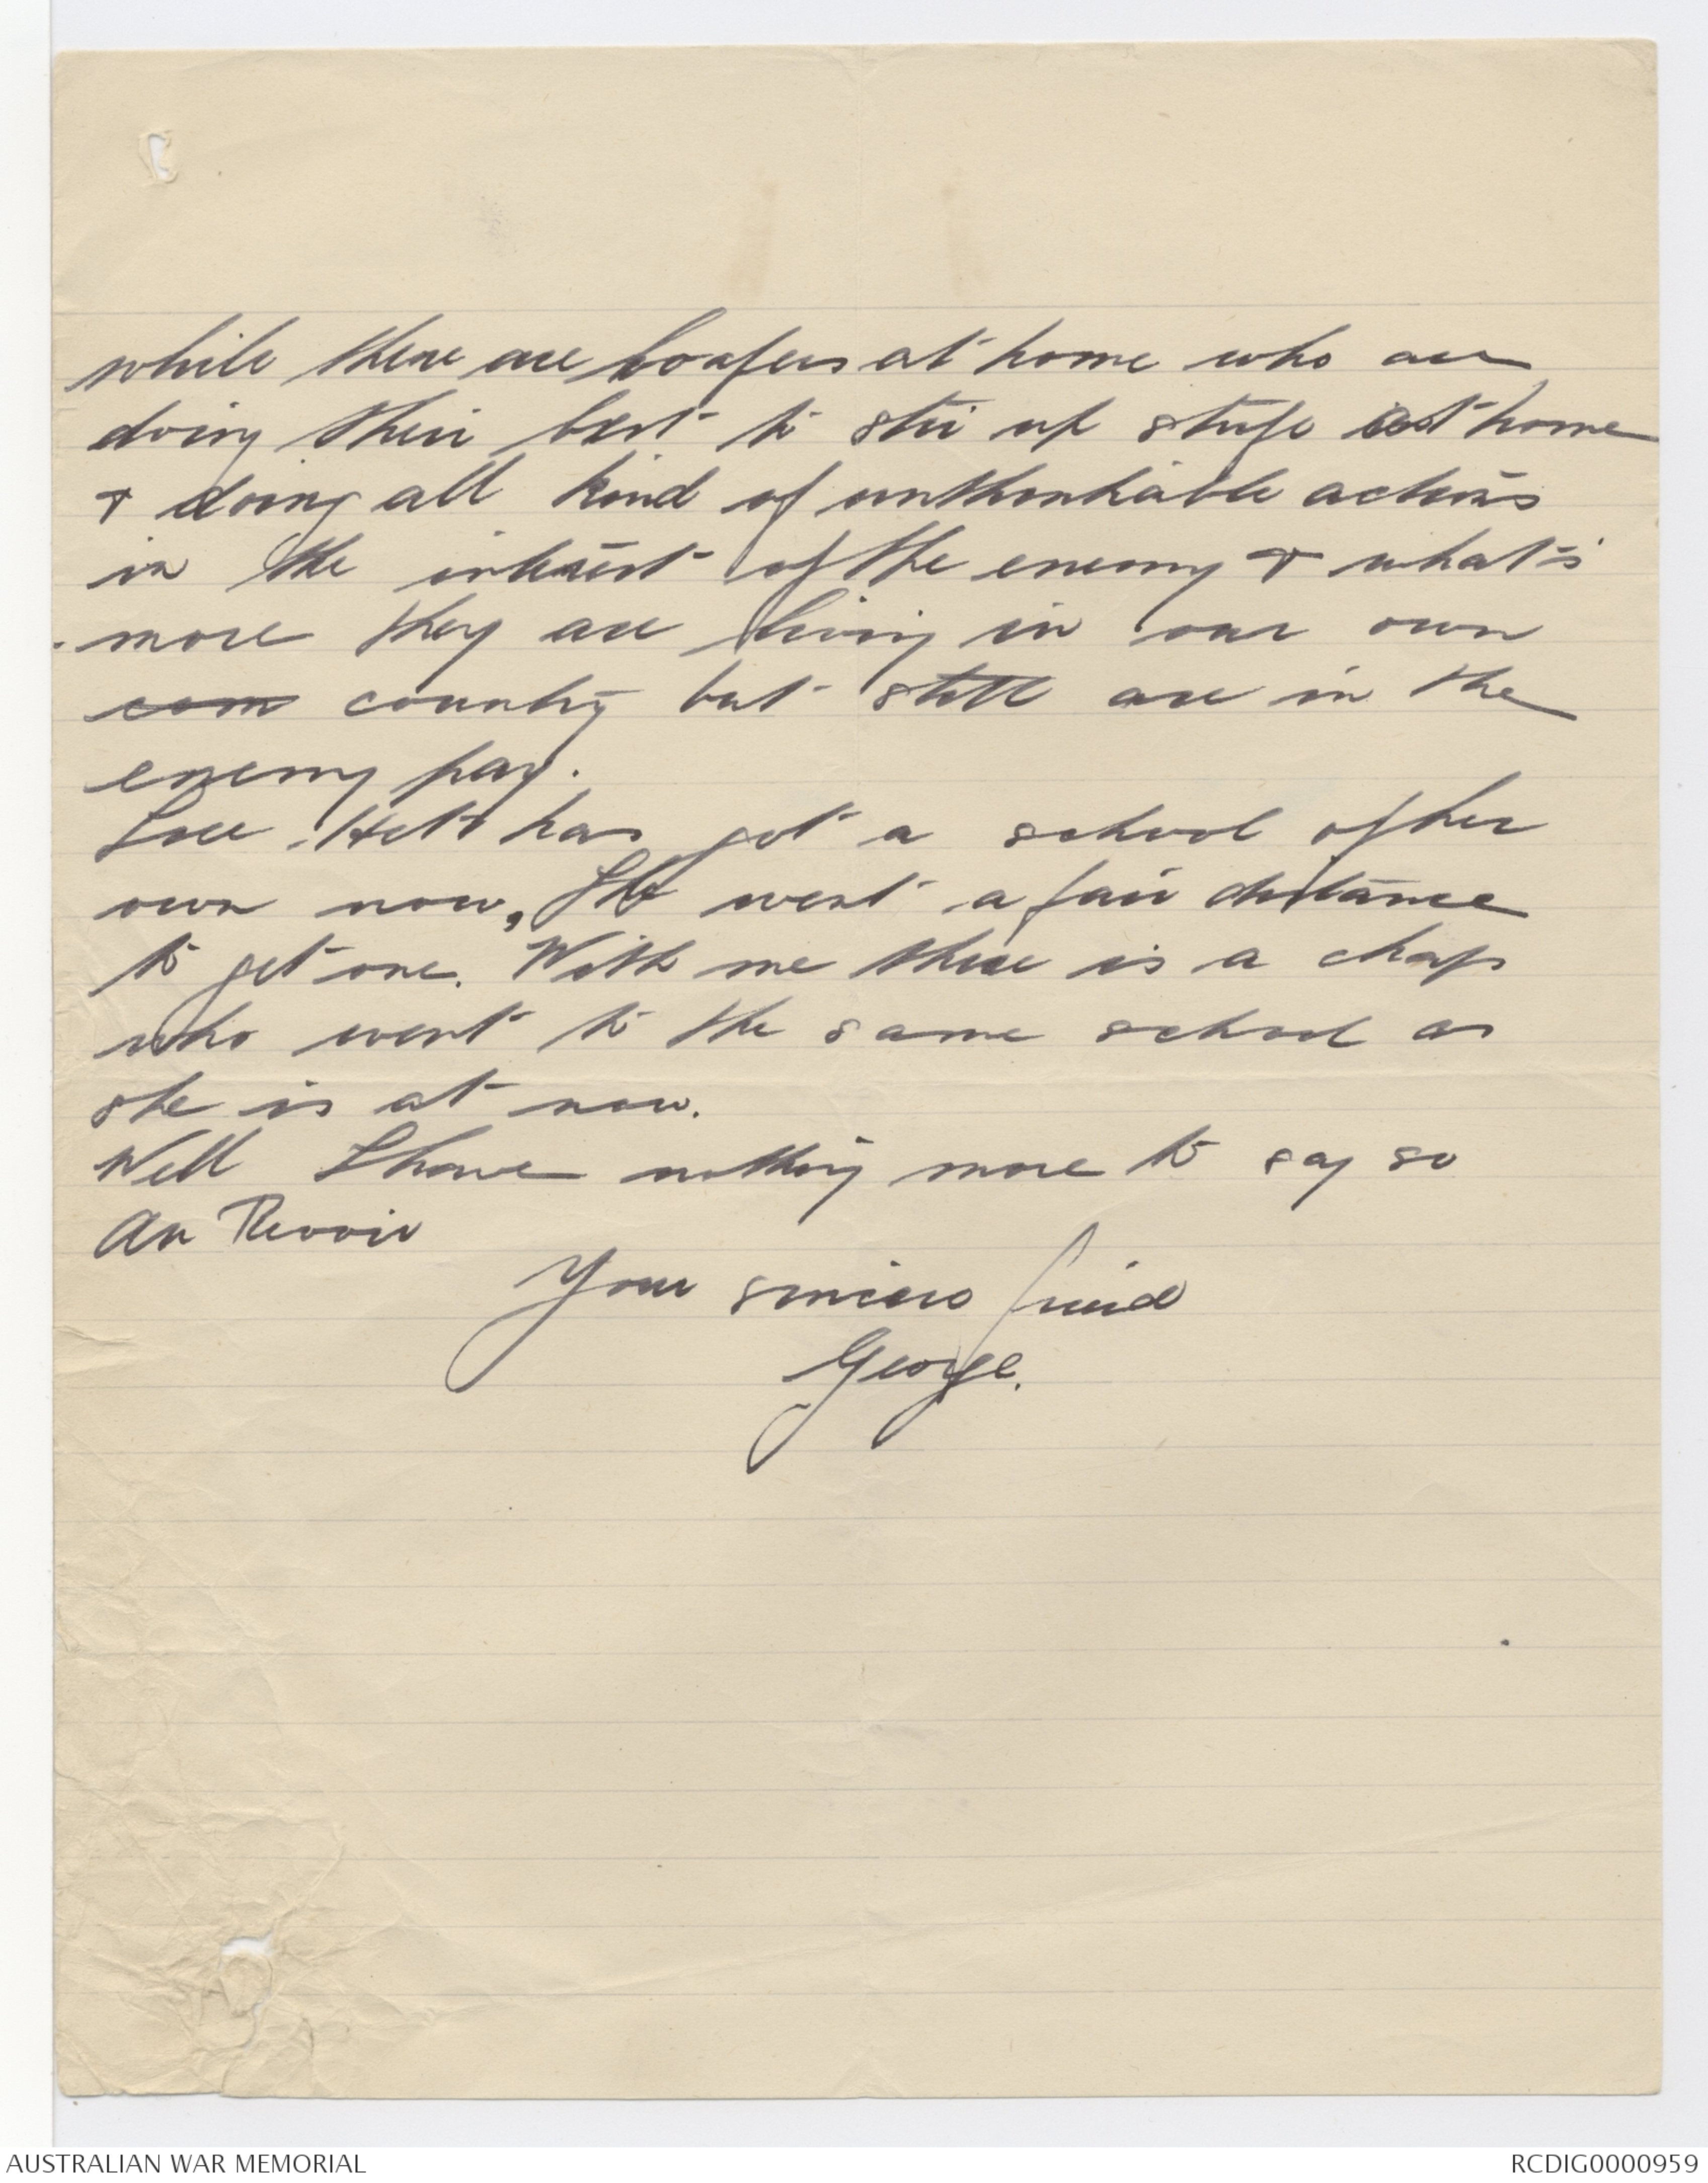 while there are loafers at home who are
doing their best to stir up strife at home
& doing all kind of unthinkable actions
in the interest of the enemy & what's
more they are living in our own
com country but still are in the
enemy pay.
has got a school of her
own now, She went a fair distance
to get one. With me there is a chap
who went to the same school as
she is at now.
Well I have nothing more to say so
Au Revoir
Your sincere friend
George.
AUSTRALIAN WAR MEMORIAL
RCDIG0000959